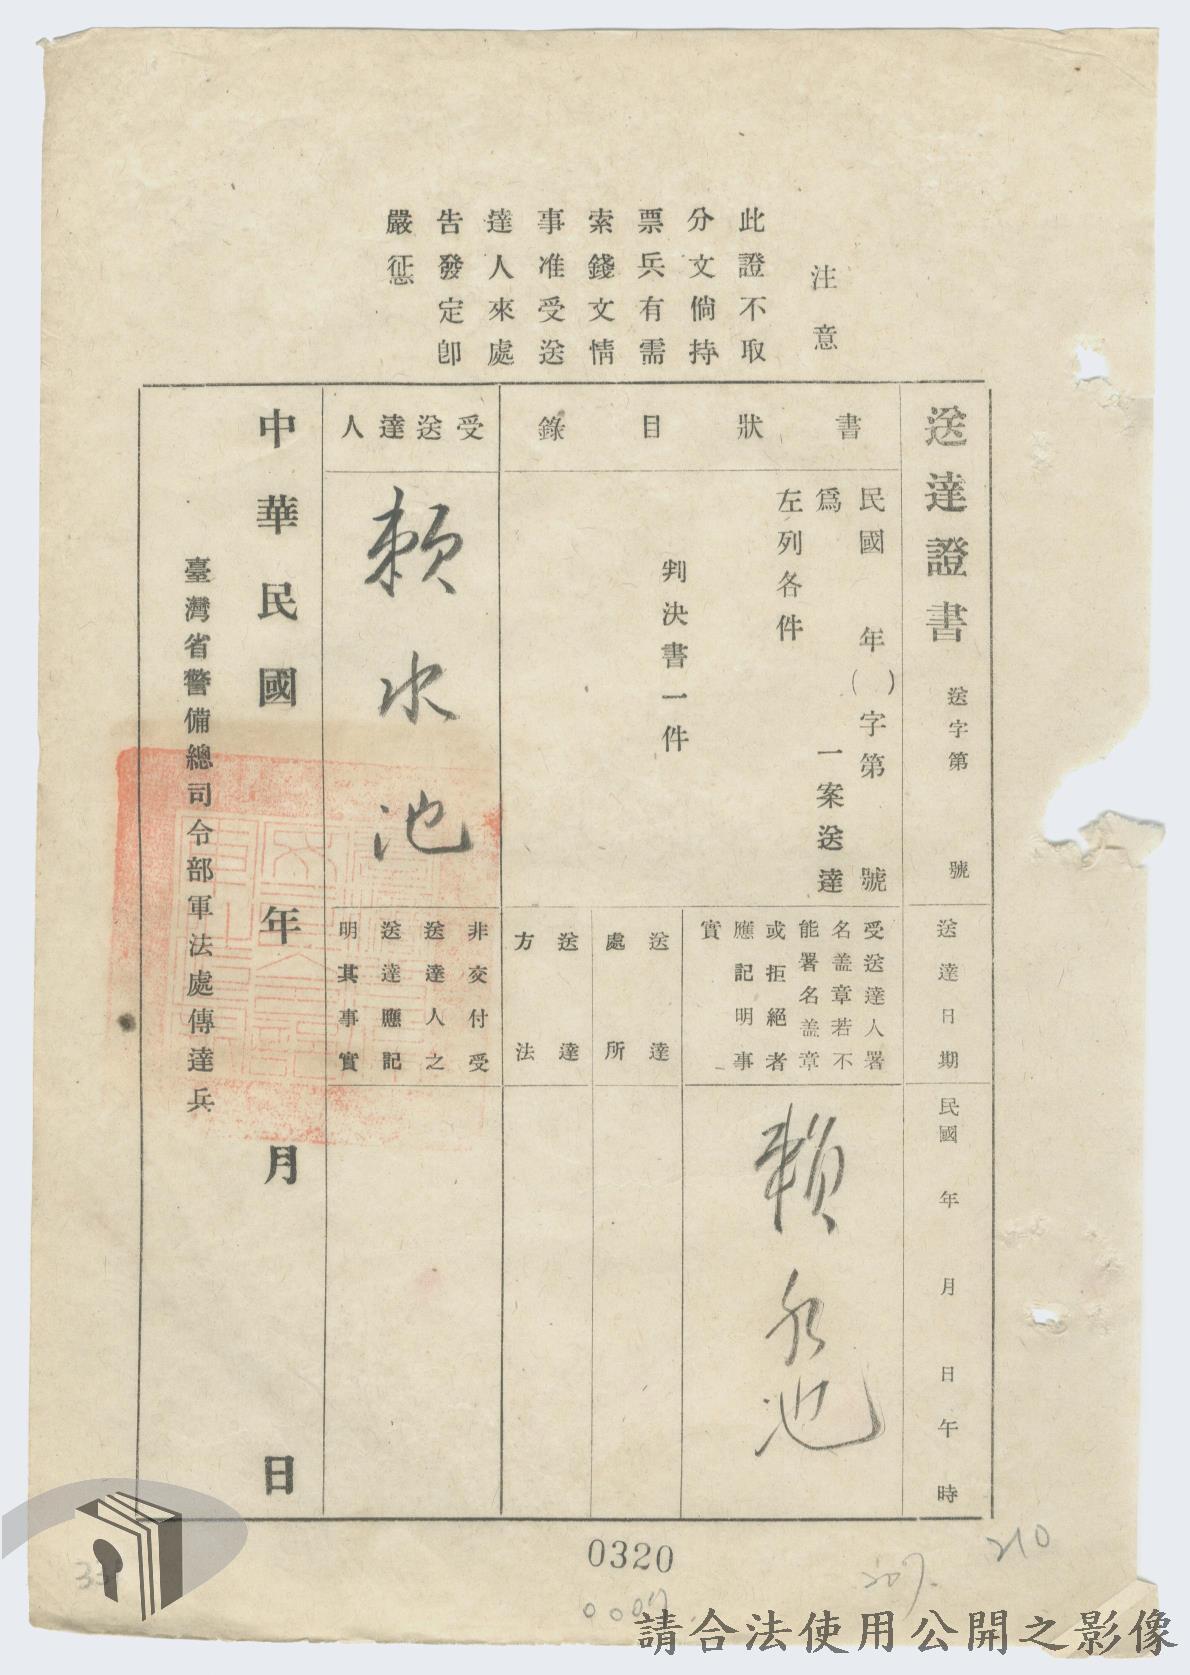 注意
此證不取
分文倘持
票兵有需
索錢文情
事准受送
達人來處
告發定卽
嚴懲
送達證書 送字第 號
送達日期
民國 年 月 日 午 時
書狀目錄
民國 年( )字第 號
為 一案送達
左列各件
判決書一件
受送達人署
名盖章若不
能署名盖章
或拒絕者
應記明事
實
賴水池
送達處所
送達方法
受送達人
賴水池
非交付受
送達人之
送達應記
明其事實
中華民國 年 月 日
臺灣省警備總司令部軍法處傳達兵
0320
210
207
請合法使用公開之影像